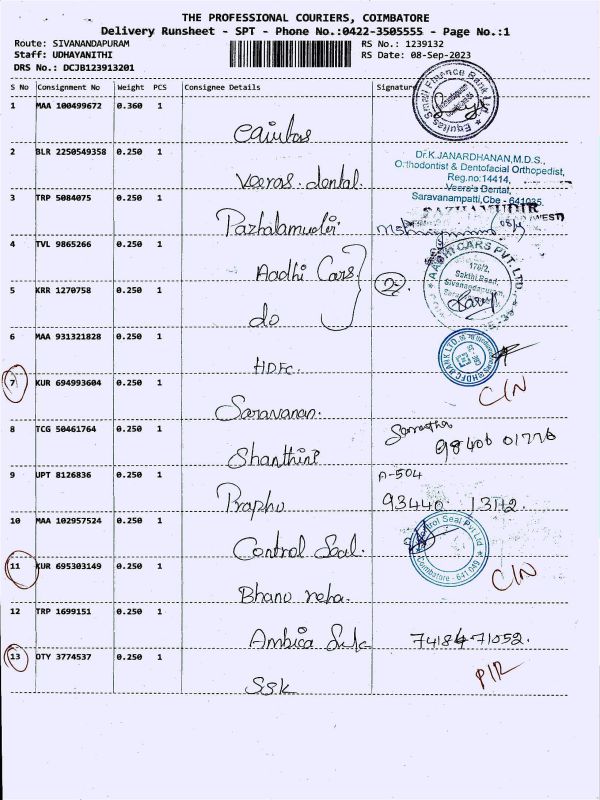 THE PROFESSIONAL COURIERS, COIMBATORE
Delivery Runsheet - SPT - Phone No.:0422-3505555 - Page No.:1
Route: SIVANANDAPURAM
Staff: UDHAYANITHI
DRS No.: DCJB123913201
RS No.: 1239132
RS Date: 08-Sep-2023
S No Consignment No Weight PCS Consignee Details Signature
1 MAA 100499672 0.360 1
Equitas Small Finance Bank Ltd
2 BLR 2250549358 0.250 1
Veeras. dental.
Dr.K.JANARDHANAN,M.D.S.,
Orthodontist & Dentofacial Orthopedist,
Reg.no:14414,
Veera's Dental,
Saravanampatti,Cbe - 641035.
3 TRP 5084075 0.250 1
Pazhalamudir.
PAZHAMUDIR
(WEST)
4 TVL 9865266 0.250 1
Aadhi Cars
2
AADHI CARS PVT. LTD.
176/2,
Sakthi Road,
Sivanandapuram,
5 KRR 1270758 0.250 1
do
6 MAA 931321828 0.250 1
HDFC.
HDFC BANK LTD.
7 KUR 694993604 0.250 1
Saravanan.
C/N
8 TCG 50461764 0.250 1
Shanthini
98406 01776
9 UPT 8126836 0.250 1
Praphu
A-504
93440 13112
10 MAA 102957524 0.250 1
Control Seal.
Control Seal Pvt Ltd
Coimbatore - 641 049
11 KUR 695303149 0.250 1
Bhanu neha.
C/N
12 TRP 1699151 0.250 1
Ambica Silk
74184 71052.
13 OTY 3774537 0.250 1
SSK
P/R